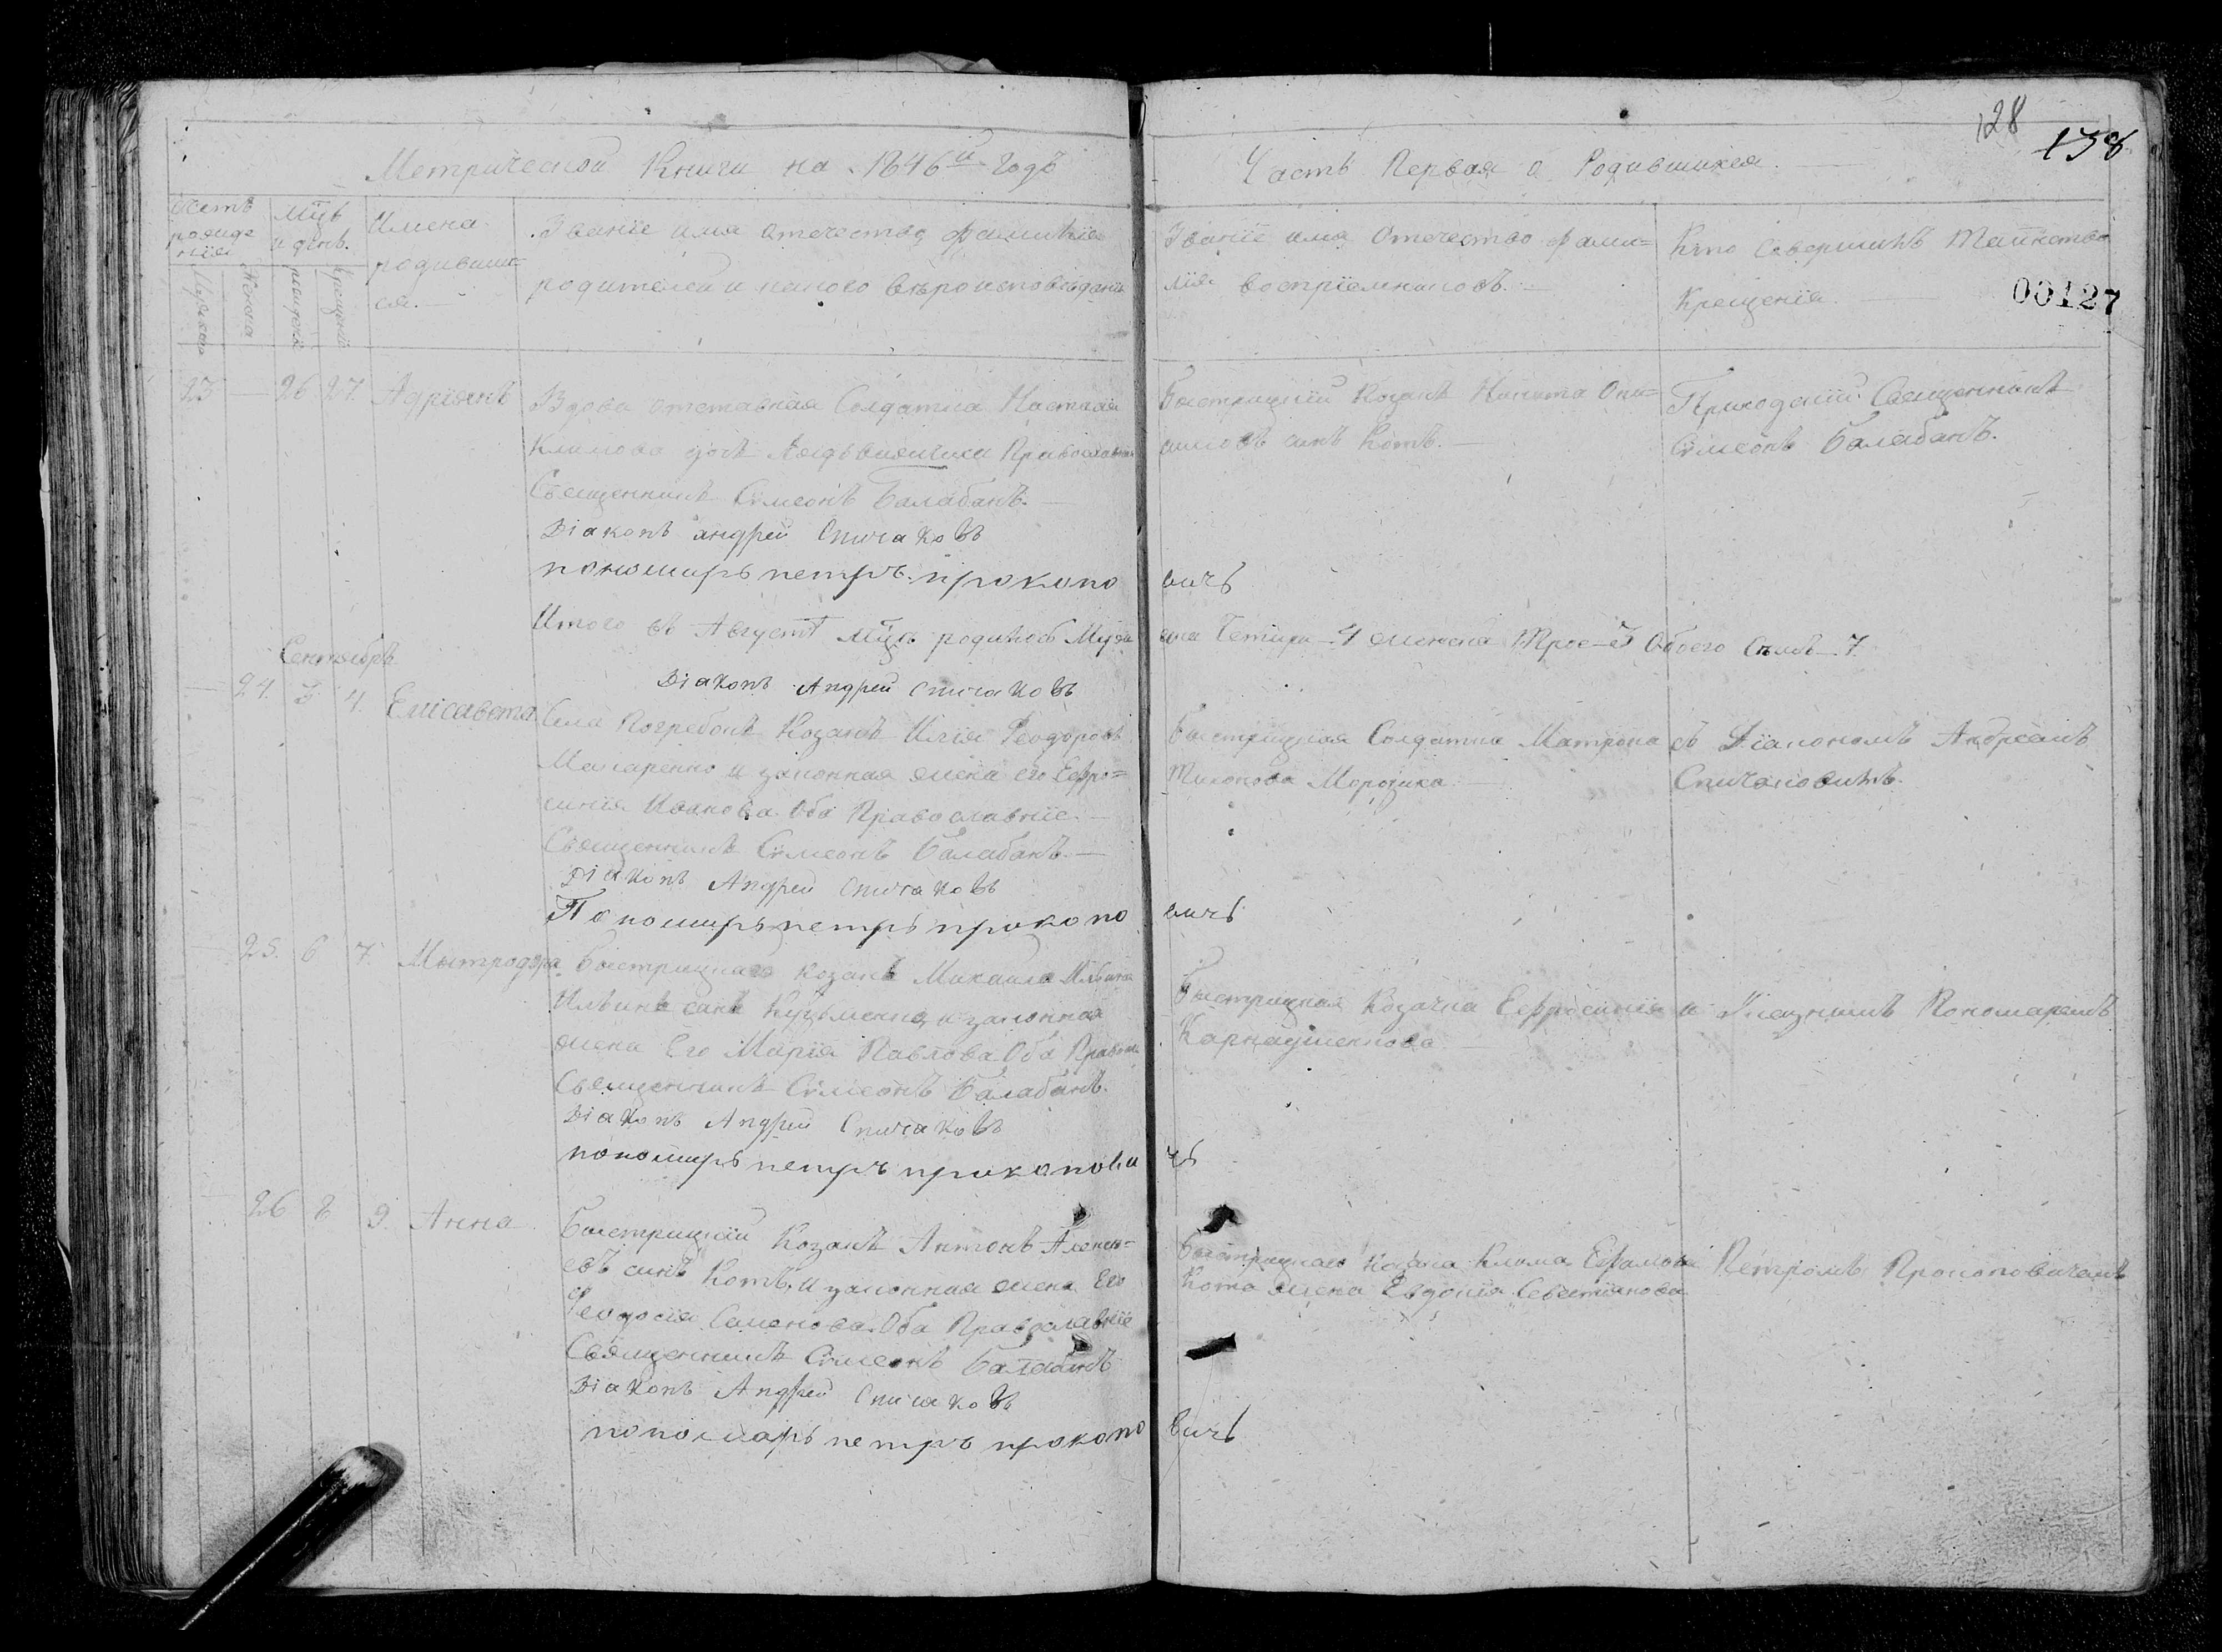 128
138
Метрической Книги на 1846й Годъ
Часть Первая о Родившихся.
Счетъ рожде нія
Мцъ и день.
Имена родивших ся.
Званіе имя Отечество Фамилія
родителей и какого вѣроисповѣданія
Званіе имя Отечество фами=
лія воспріемниковъ.
Кто Совершилъ Таинство
Крещенія.
00127
Мужеска
Женска
рожденія
крещенія
23 — 26 27 Адріанъ
Вдова отставная Солдатка Настасія
Климова дочь Православная
Священникъ Сѵмеонъ Балабанъ.
Діаконъ андрей Спичаковъ
пономаръ петръ прокопо вичъ
Быстрицкій Козакъ Никита Они=
симовъ синъ Котъ.
Приходскій Священникъ
Сѵмеонъ Балабанъ.
Итого въ Августѣ мцѣ родилось Муже ска Четири 4 женска Трое 3 Обоего 7.
Діаконъ Андрей Спичаковъ
Сентябрь
— 24. 3 4. Елісавета
Села Погребокъ Козакъ Илія Феодоровъ
Макаренко и законная жена его Евфро=
синія Иванова Оба Православніе.
Священникъ Сѵмеонъ Балабанъ.
Діаконъ Андрей Спичаковъ
Пономаръ петръ прокопо вичъ
Быстрицкая Солдатка Матрона
Тихонова
съ Діакономъ Андреемъ
Спичаковимъ.
— 25. 6 7. Митродора
Быстрицкаго козакъ Михаила
Ильинъ синъ Кузьменко и законная
жена Его Марія Павлова Оба Правос
Священникъ Сѵмеонъ Балабанъ.
Діаконъ Андрей Спичаковъ
пономаръ петръ прокопови чъ
Быстрицкая Козачка Евфросинія
и Пономаремъ
26 8 9. Анна.
Быстрицкій Козакъ Антонъ Алексѣ=
евъ синъ Котъ, и законная жена Его
Феодосія Семенова Оба Православніе
Священникъ Сѵмеонъ Балабанъ
Діаконъ Андрей Спичаковъ
пономаръ петръ прокопо вичъ
Быстрицкаго Козака Клима
Кота жена Евдокія Севастіянова
Петромъ Прокоповичемъ